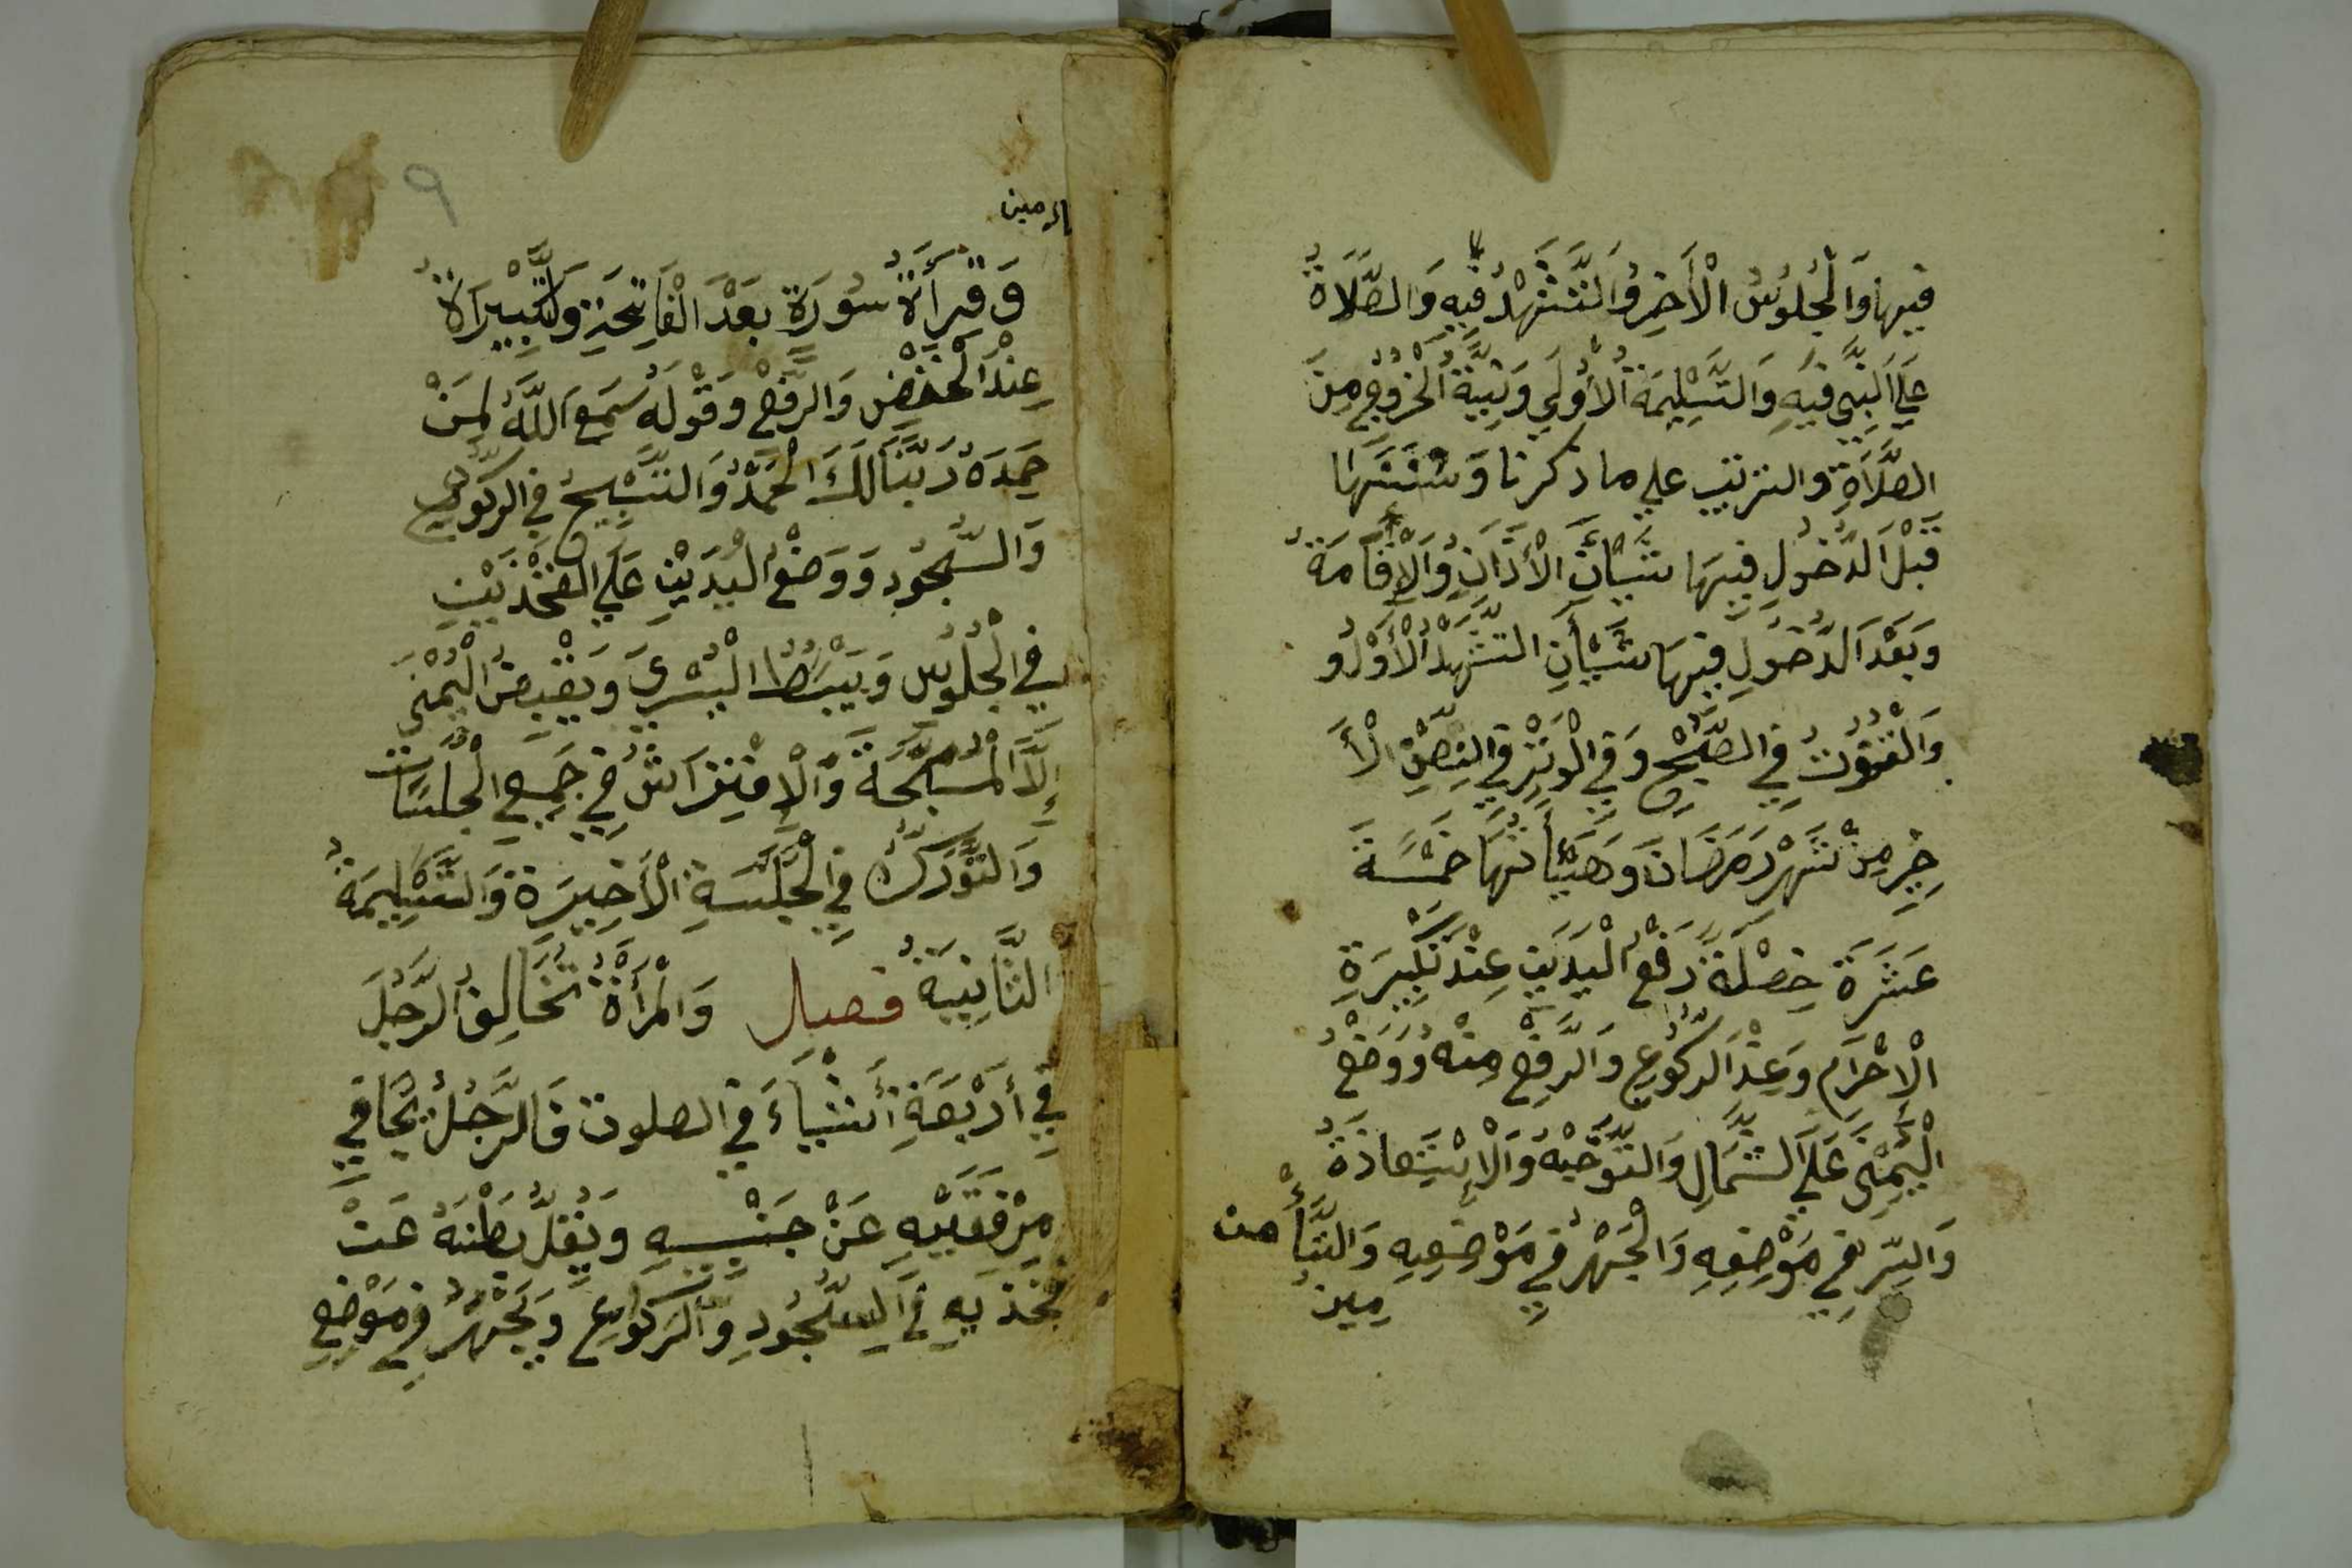 فِيهَا وَالْجُلُوسُ الْأَخِرُ وَالتَّشَهُّدُ فِيهِ وَالصَّلَاةُ
عَلَي النَّبِي فِيهِ وَالتَّسْلِيمَةُ الْأُولَي وَنِيَّةُ الْخُرُوجِ مِنَ
الصَّلَاةِ والترتيب علي ما ذكرنا وَسُنَنُهَا
قَبْلَ الدُّخُولِ فِيهَا شَيْأَنِ الْأَذَانُ وَالْإِقَامَةُ
وَبَعْدَ الدُّخُولِ فِيهَا شَيْأَنِ التَّشَهُّدُ الْأَوَّلُ وَ
وَالْقُنُوتُ فِي الصُّبْحِ وَفِي الْوِتْرِ فِي النِّصْفِ الْأَ
خِرِ مِنْ شَهْرِ رَمَضَانَ وَهَيْئَأتُهَا خَمْسَةَ
عَشَرَةَ خِصْلَةً رَفْعُ الْيَدَيْنِ عِنْدَ تَكْبِيرَةِ
الْإِحْرَامِ وَعِنْدَ الرُّكُوعِ وَالرَّفْعِ مِنْهُ وَوَضْعُ
الْيُمْنَى عَلَي الشِّمَالِ وَالتَّوَجُّهُ وَالْإِسْتِعَاذَةُ
وَالسِّرُّ فِي مَوْضِعِهِ وَالْجَهْرُ فِي مَوْضِعِهِ وَالتَّأْ
مِينُ
وَقِرَأَةُ سُورَةٍ بَعْدَ الْفَاتِحَةِ وَالتَّكْبِيرَاةُ
عِنْدَ الْخَفْضِ وَالرَّفْعِ وَقَوْلُهُ سَمِعَ اللَّهُ لِمَنْ
حَمِدَهُ رَبَّنَا لَكَ الْحَمْدُ وَالتَّسْبِيحُ فِي الرُّكُوعِ
وَالسُّجُودِ وَوَضْعُ الْيَدَيْنِ عَلَي الْفَخْذَيْنِ
فِي الْجُلُوسِ وَيَبْسُطُ الْيُسْرَي وَيَقْبِضُ الْيُمْنَى
إِلَّا الْمُسَبِّحَةَ وَالْإِفْتِرَاشُ فِي جَمِيعِ الْجَلَسَات
وَالتَّوَرُّكُ فِي الْجَلْسَةِ الْأَخِيرَةِ وَالتَّسْلِيمَةُ
الثَّانِيَةُ فصل وَالْمَرْأَةُ تُخَالِفُ الرَّجُلَ
فِي أَرْبَعَةِ أَشْيَاءَ فِي الصلوت فَالرَّجُلُ يُجَافِي
مِرْفَقَيْهِ عَنْ جَنْبَيْهِ وَيُقِلُّ بَطْنَهُ عَنْ
فَخْذَيْهِ فِي السُّجُودِ وَالرُّكُوعِ وَيَجْهَرُ فِي مَوْضِعِ